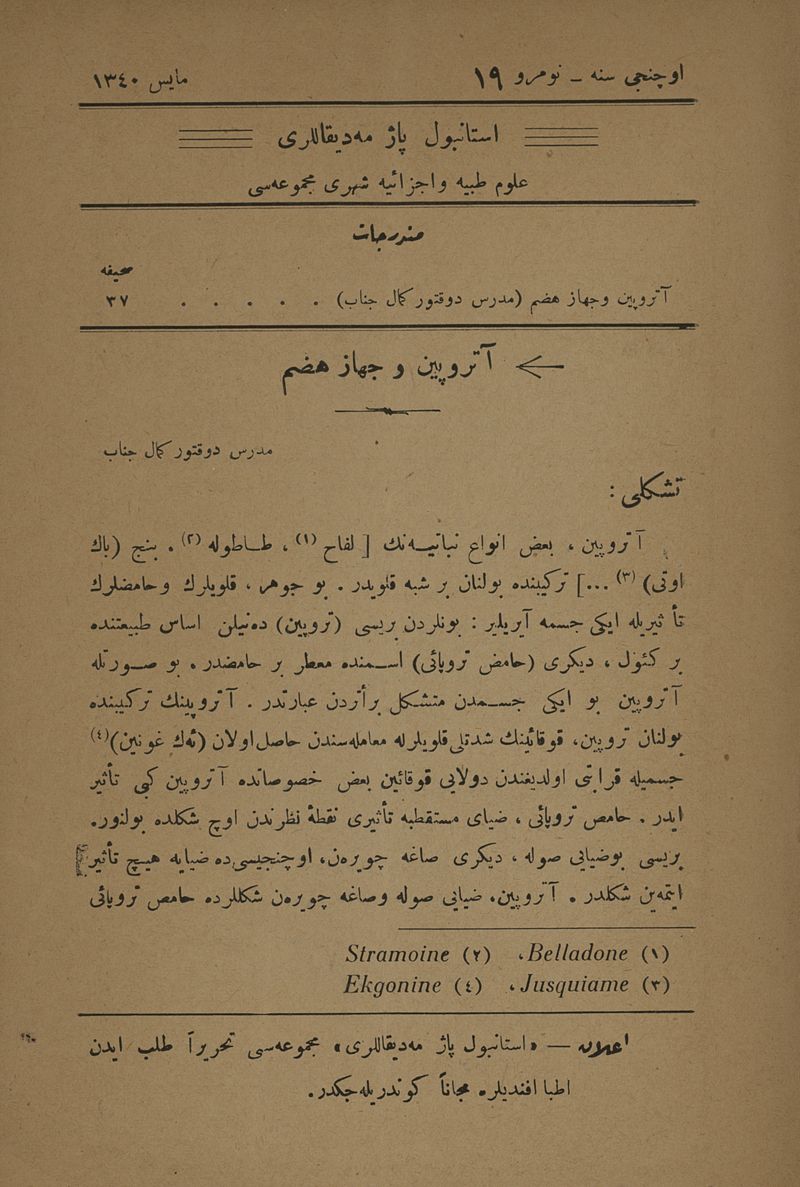 اوچنجی سنه ـ نومرو ۱۹
مایس ۱۳٤۰
استانبول پاژ مه‌دیقاللری
علوم طبیه و اجزائیه شهری مجموعه‌سی
مندرجات
صحیفه
آتروپین و جهاز هضم (مدرس دوقتور کمال جناب) . . . . . ۳۷
آتروپین و جهاز هضم
مدرس دوقتور کمال جناب
تشکلی :
آتروپین ، بعض انواع نباتیه‌نك [ لفاح (۱) ، طاطوله (۲) . بنج (باك
اوتی) (۳) ...] ترکیبنده بولنان بر شبه قلویدر . بو جوهر ، قلویلرك و حامضلرك
تأثیریله ایکی جسمه آیریلیر : بونلردن بریسی (تروپین) ده‌نیلن اساس طبیعتنده
بر کئول ، دیکری (حامض تروپائی) اسمنده معطر بر حامضدر . بو صورتله
آتروپین بو ایکی جسمدن متشکل بر أتردن عبارتدر . آتروپینك ترکیبنده
بولنان تروپین، قوقائینك شدتلی قلویلرله معامله‌سندن حاصل اولان (ئه‌ك غونین)(٤)
جسمیله قرابتی اولدیغندن دولایی قوقائین بعض خصوصاتده آتروپین کبی تأثیر
ایدر . حامص تروپائی ، ضیای مستقطبه تأثیری نقطهٔ نظرندن اوچ شکلده بولنور.
بریسی بوضیایی صوله ، دیکری صاغه چویره‌ن، اوچنجیسی‌ده ضیایه هیچ تأثیر
ایتمه‌ین شکلدر . آتروپین، ضیایی صوله وصاغه چویره‌ن شکللرده حامص تروپائی
(۱) Belladone، (۲) Stramoine
(۳) Jusquiame، (٤) Ekgonine
اعلان — «استانبول پاژ مه‌دیقاللری» مجموعه‌سی تحریراً طلب ایدن
اطبا افندیلره مجاناً کوندریله‌جکدر .